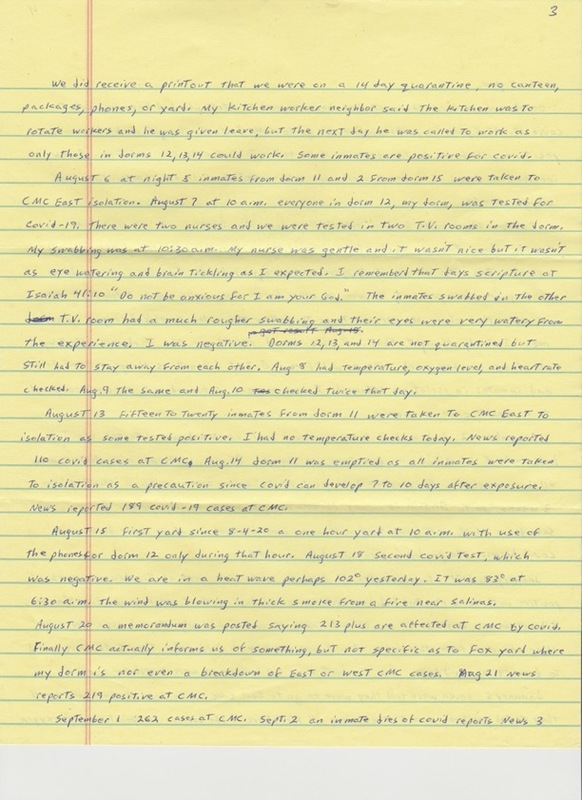 3
We did receive a printout that we were on a 14 day quarantine, no canteen,
packages, phones, or yard. My kitchen worker neighbor said the kitchen was to
rotate workers and he was given leave, but the next day he was called to work as
only those in dorms 12, 13, 14 could work. Some inmates are positive for covid.
August 6 at night 8 inmates from dorm 11 and 2 from dorm 15 were taken to
CMC East isolation. August 7 at 10 a.m. everyone in dorm 12, my dorm, was tested for
Covid-19. There were two nurses and we were tested in two T.V. rooms in the dorm.
My swabbing was at 10:30 a.m. My nurse was gentle and it wasn't nice but it wasn't
as eye watering and brain tickling as I expected. I remembered that days scripture at
Isaiah 41:10 "Do not be anxious for I am your God." The inmates swabbed in the other
T.V. room had a much rougher swabbing and their eyes were very watery from
got result Aug 18.
the experience. I was negative. Dorms 12, 13, and 14 are not quarantined but
still had to stay away from each other. Aug 8 had temperature, oxygen level, and heart rate
checked. Aug. 9 the same and Aug. 10 checked twice that day.
August 13 fifteen to twenty inmates from dorm 11 were taken to CMC East to
isolation as some tested positive. I had no temperature checks today. News reported
110 covid cases at CMC. Aug. 14 dorm 11 was emptied as all inmates were taken
to isolation as a precaution since covid can develop 7 to 10 days after exposure.
News reported 189 covid-19 cases at CMC.
August 15 first yard since 8-4-20 a one hour yard at 10 a.m. with use of
the phones for dorm 12 only during that hour. August 18 second covid test, which
was negative. We are in a heat wave perhaps 102° yesterday. It was 83° at
6:30 a.m. The wind was blowing in thick smoke from a fire near Salinas.
August 20 a memorandum was posted saying 213 plus are affected at CMC by covid.
Finally CMC actually informs us of something, but not specific as to Fox yard where
my dorm is nor even a breakdown of East or West CMC cases. Aug 21 news
reports 219 positive at CMC.
September 1 262 cases at CMC. Sept. 2 an inmate dies of covid reports News 3